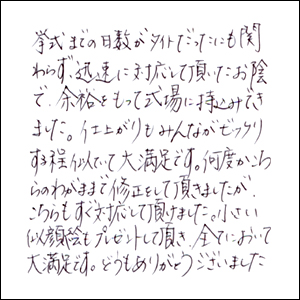 挙式までの日数がタイトだったにも関
わらず、迅速に対応して頂いたお陰
で、余裕をもって式場に持込みでき
ました。仕上がりもみんながビックリ
する程似ていて大満足です。何度かこち
らのわがままで修正をして頂きましたが、
こちらもすぐ対応して頂けました。小さい
似顔絵もプレゼントして頂き、全てにおいて
大満足です。どうもありがとうございました